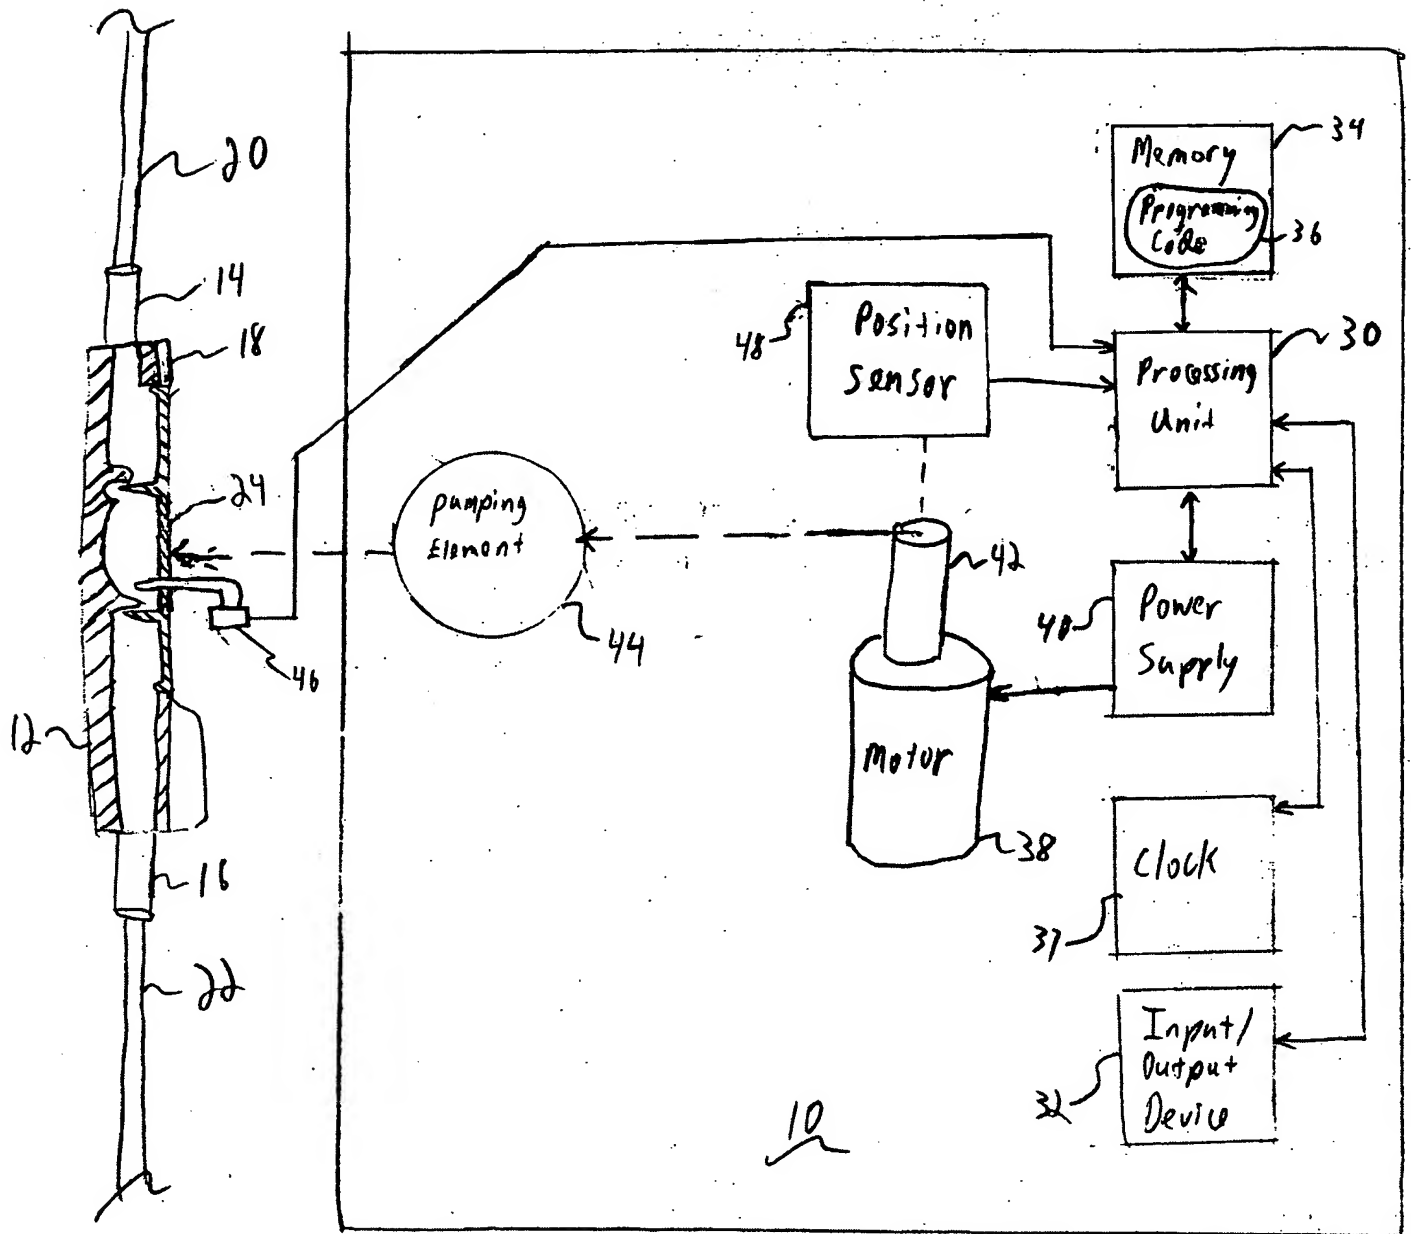 20
14
18
24
46
12
16
22
Pumping
Element
44
48
Position
Sensor
42
Motor
38
Memory
Programming
Code
34
36
Processing
Unit
30
40
Power
Supply
Clock
37
Input/
Output
Device
32
10